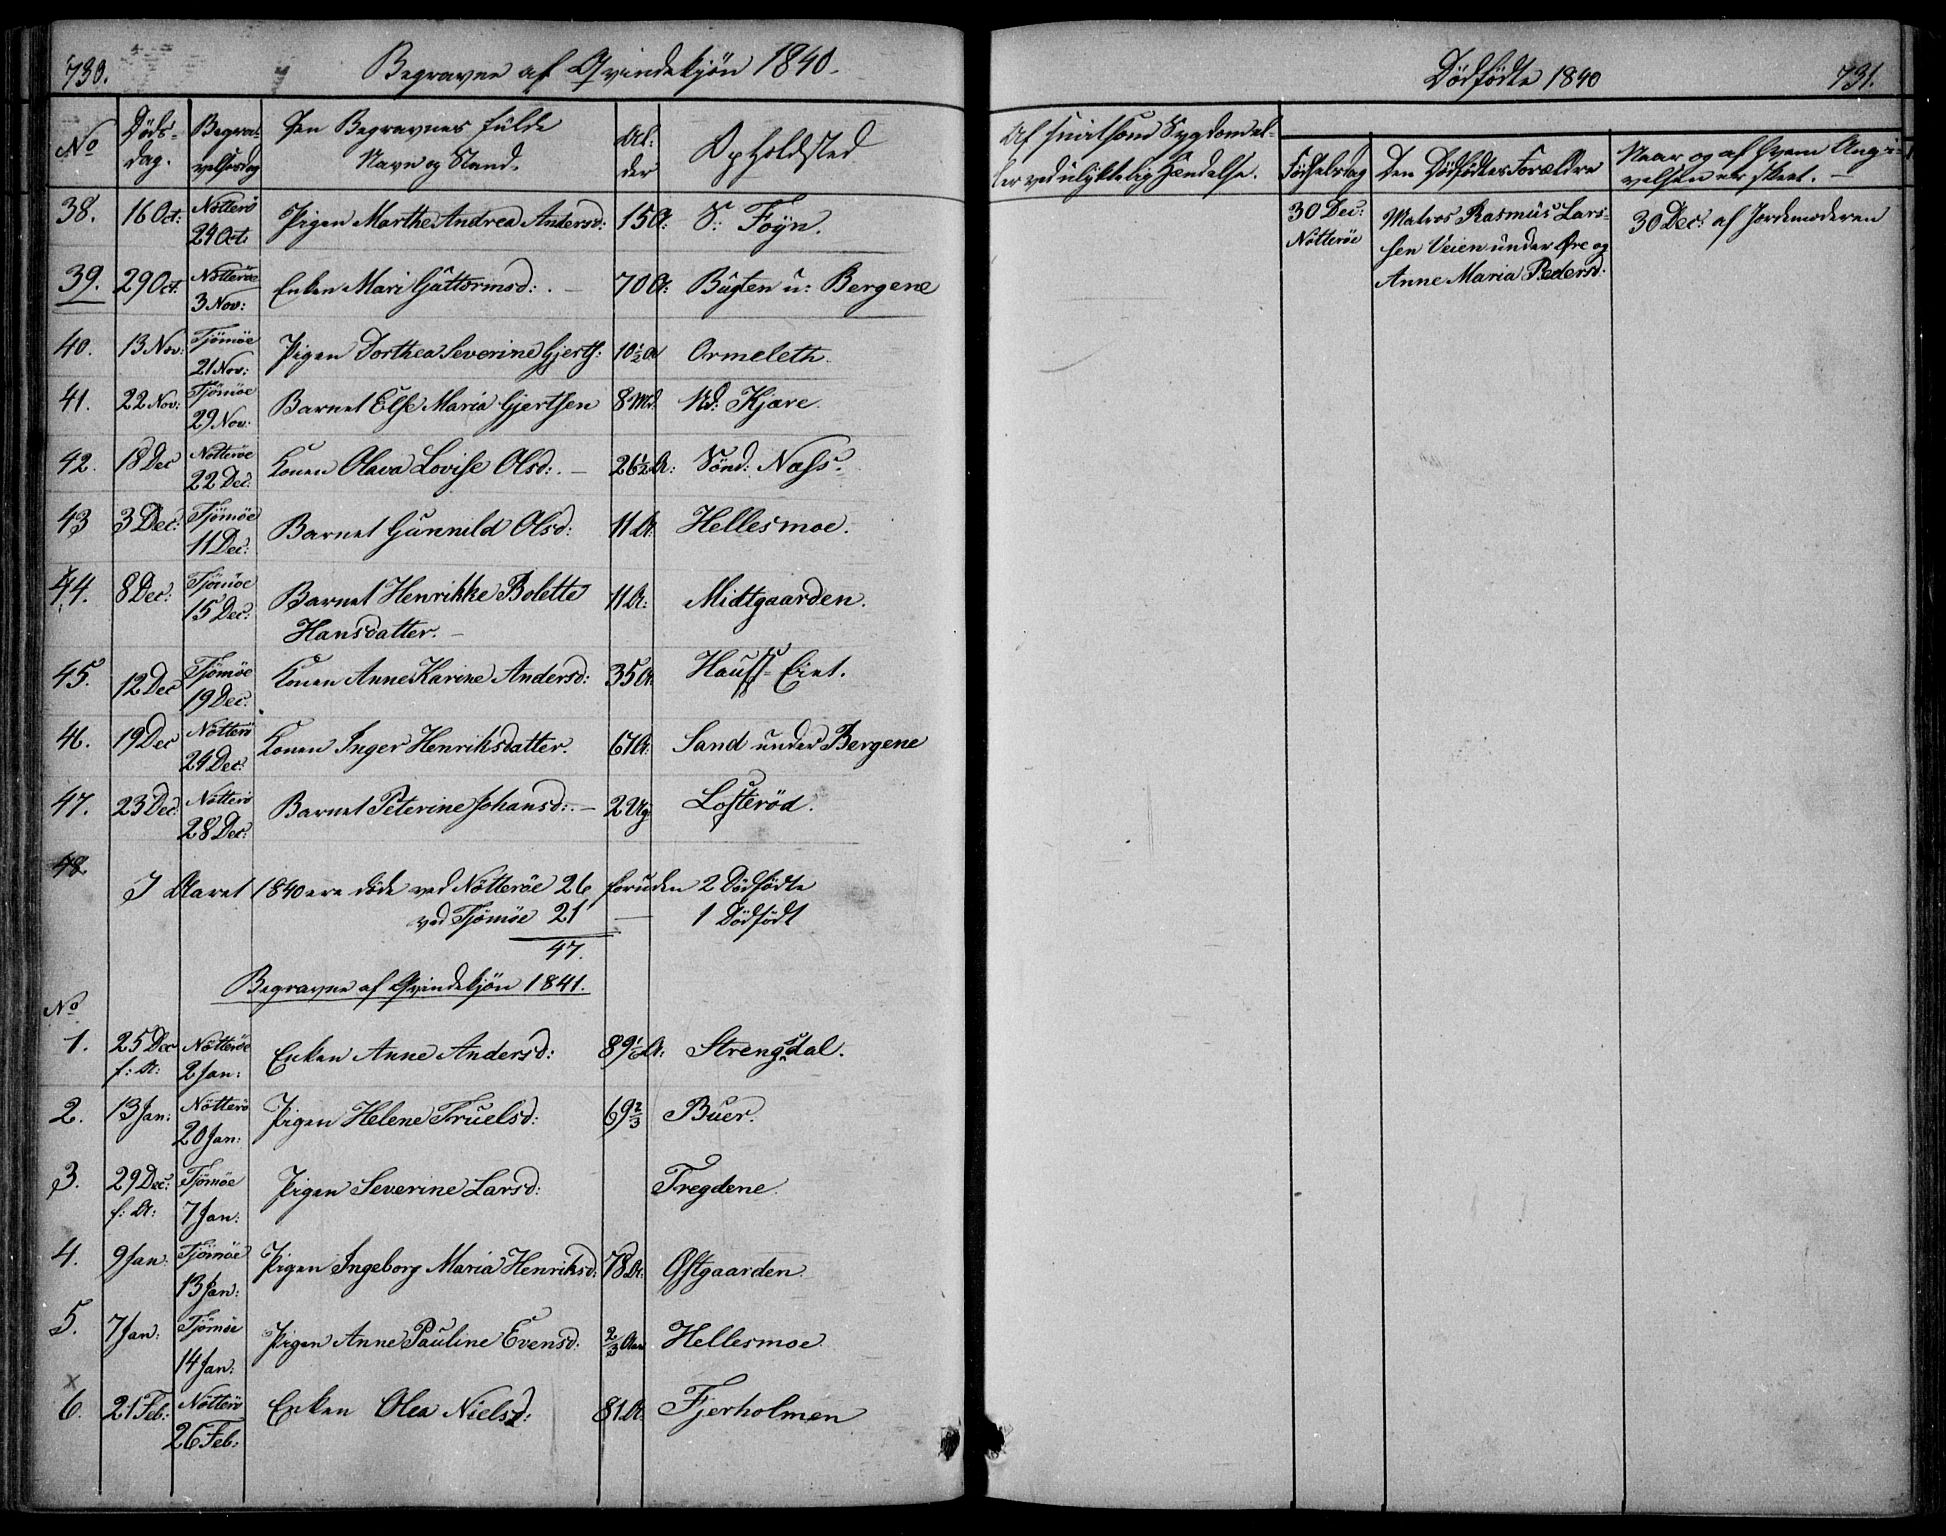 730.
Begravne af Qvindekjön 1840.
No
Döds-
dag.
Begra-
velsesdag
Den Begravnes fulde
Navn og Stand.
Al-
der
Opholdsted
38. 16 Oct: Nötterö 24 Oct. Pigen Marthe Andrea Andersd: 15 A: S: Föyn.
39. 29 Oct: Nötteröe 3 Nov: Enken Mari Guttormsd: . — 70 A: Bugten u: Bergene
40. 13 Nov: Tjömöe 21 Nov: Pigen Dorthea Severine Gjerts: 10½ A Ormeleth.
41. 22 Nov: Tjömöe 29 Nov: Barnet Else Maria Gjertsen 8 Md. Nd: Kjære.
42. 18 Dec Nötteröe 22 Dec: Konen Olava Lovise Olsd: . — 26½ A: Sönd: Næss.
43 3 Dec: Tjömöe 11 Dec: Barnet Gunnild Olsd: 11 A: Hellesmoe.
44. 8 Dec: Tjömöe 15 Dec: Barnet Henrikke Bolette 11 A: Midtgaarden.
Hansdatter. —
45. 12 Dec Tjömöe 19 Dec: Konen Anne Karine Andersd: 35 A: Hauff-Eiet.
46. 19 Dec Nötterö 24 Dec: Konen Inger Henriksdatter. 67 A: Sand under Bergene
47. 23 Dec: Nötterö 28 Dec: Barnet Peterine Johansd: . — 2 Ug: Lofteröd.
48
I Aaret 1840 ere döde ved Nötteröe 26 foruden 2 Dödfödte
ved Tjömöe 21 — 1 Dödfödt
47.
Begravne af Qvindekjön 1841.
No
1. 25 Dec f: A: Nötteröe 2 Jan: Enken Anne Andersd: 89 A: Strengsdal.
2. 13 Jan: Nötterö 20 Jan: Pigen Helene Truelsd: 69⅔ Buer.
3. 29 Dec: f: A: Tjömöe 7 Jan: Pigen Severine Larsd: Tregdene.
4. 9 Jan: Tjömöe 13 Jan: Pigen Ingeborg Maria Henriksd: 78 A: Østgaarden.
5. 7 Jan: Tjömöe 14 Jan: Pigen Anne Pauline Evensd: ⅔ Aar Hellesmoe
x
6. 21 Feb: Nötterö 26 Feb: Enken Olea Nielsd: 81 A: Fjerholmen
Dödfödte 1840
731.
Af hvilken Sygdom el-
ler ved ulykkelig Hændelse.
Födselsdag
Den Dödfödtes Forældre
Naar og af hvem Angi-
velsen er skeet. —
30 Dec:
Nötteröe
Matros Rasmus Lars-
sen Veien under Øre og
Anne Maria Pedersd:
30 Dec: af Jordemoderen